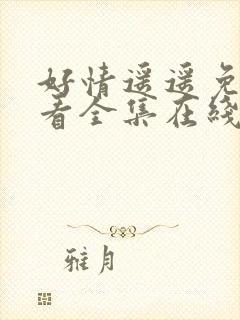 好情遥遥免
看全集在线
雅月